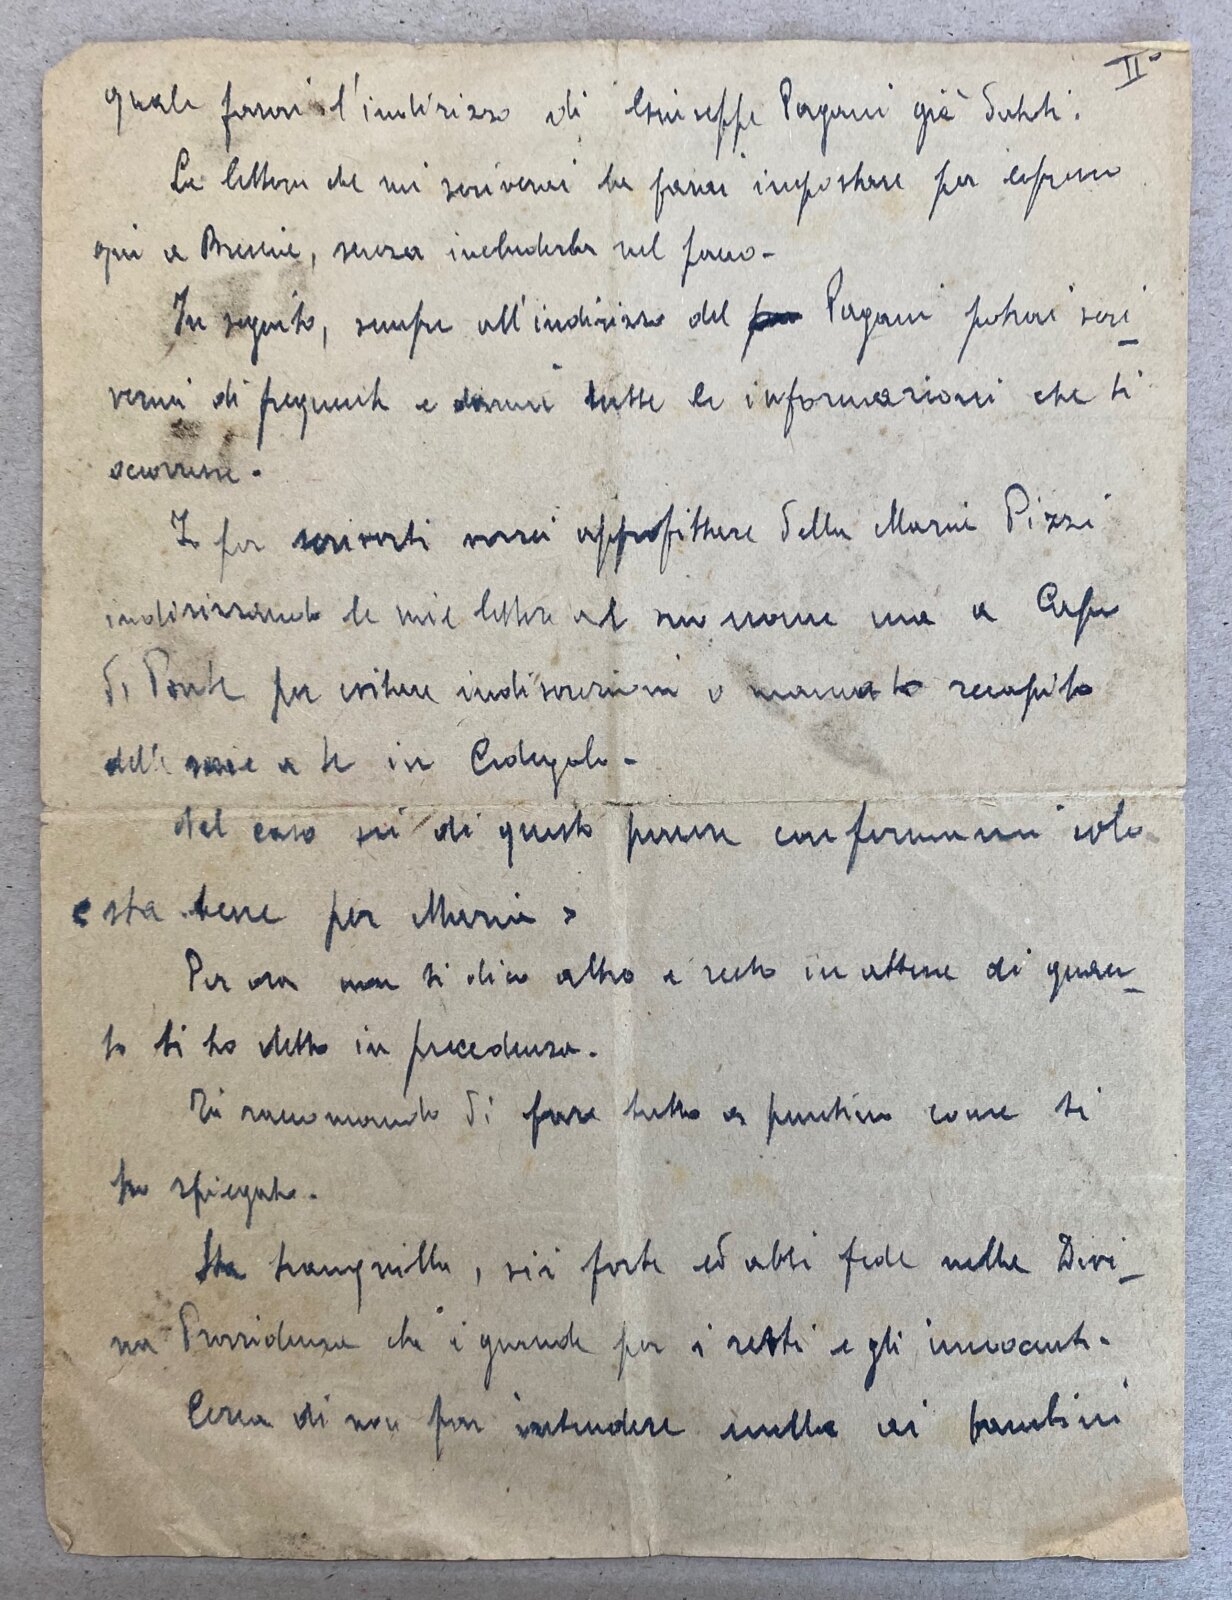 II°
quale farai l'indirizzo di Giuseppe Pagani già detti.
La lettera che mi scriverai la farai impostare per espresso
qui a Brescia, senza includerla nel pacco -
In seguito, sempre all'indirizzo del Pagani potrai scri_
vermi di frequente e darmi tutte le informazioni che ti
occorresse -
Io per scriverti vorrei approfittare della Maria Pizzi
indirizzando le mie lettere al suo nome ma a Capo
di Ponte per evitare indiscrezioni o mancato recapito
delle mie a te in Cedegolo -
Nel caso sii di questo parere confermami solo
" sta bene per Maria "
Per ora non ti dico altro e resto in attesa di quan_
to ti ho detto in precedenza.
Ti raccomando di fare tutto a puntino come ti
ho spiegato.
Sta tranquilla, sii forte ed abbi fede nella Divi_
na Provvidenza che è grande per i retti e gli innocenti -
Cerca di non far intendere nulla ai bambini